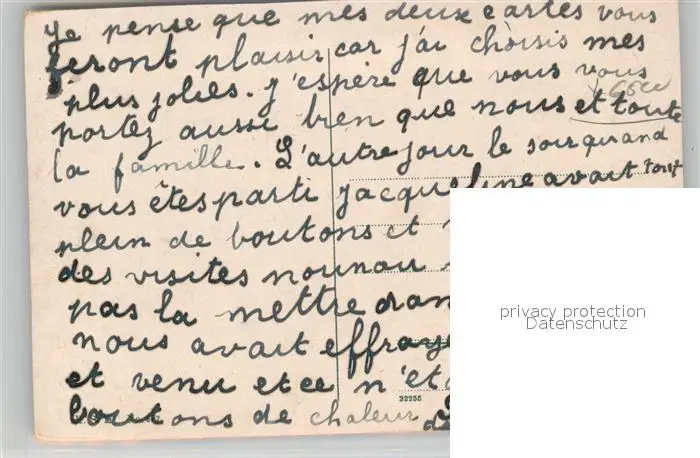 Je pense que mes deux cartes vous
feront plaisir car j'ai choisis mes
plus jolies. j'espère que vous vous
portez aussi bien que nous et toute
la famille. L'autre jour le soir quand
vous êtes parti jacqueline avait tout
plein de boutons et
des visites nounou
pas la mettre dan
nous avait effraye
et venu et ce n'ét
boutons de chaleur
32255
privacy protection
Datenschutz